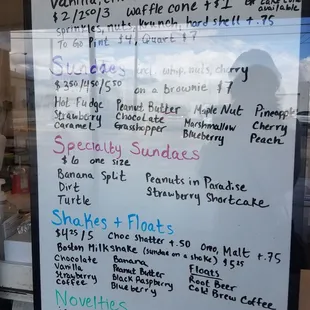 Vanilla,
$2/250/3 waffle cone +$1
sprinkles, nuts, krunch, hard shell +.75
To Go Pint $4, Quart $7
available
Sundaes incl. whip, nuts, cherry
$350/450/550 on a brownie $7
Hot Fudge Peanut Butter Maple Nut Pineapple
Strawberry Chocolate Marshmallow Cherry
Caramel Grasshopper Blueberry Peach
Specialty Sundaes
$6 one size
Banana Split Peanuts in Paradise
Dirt Strawberry Shortcake
Turtle
Shakes + Floats
$425/5 Choc shatter +.50 Oreo, Malt +.75
Boston Milkshake (sundae on a shake) $525
Chocolate Banana Floats
Vanilla Peanut Butter Root Beer
Strawberry Black Raspberry Cold Brew Coffee
Coffee Blueberry
Novelties